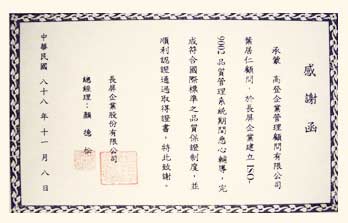 感謝函
承蒙 高登企業管理顧問有限公司
葉居仁顧問，於長屏企業建立ISO-
9002品質管理系統期間悉心輔導，完
成符合國際標準之品質保證制度，並
順利認證通過取得證書，特此致謝。
長屏企業股份有限公司
總經理：顏德
中華民國八十八年十一月八日